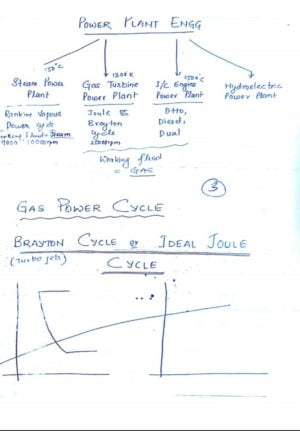 POWER PLANT ENGG
150°C
Steam Power
Plant
Rankine Vapour
Power cycle
Steam
1300K
Gas Turbine
Power Plant
Joule or
Brayton
cycle
1500°C
I/C Engine
Power Plant
Otto,
Diesel,
Dual
Hydroelectric
Power Plant
Working fluid
= GAS
3
GAS POWER CYCLE
BRAYTON CYCLE or IDEAL JOULE
(Turbo jets)
CYCLE